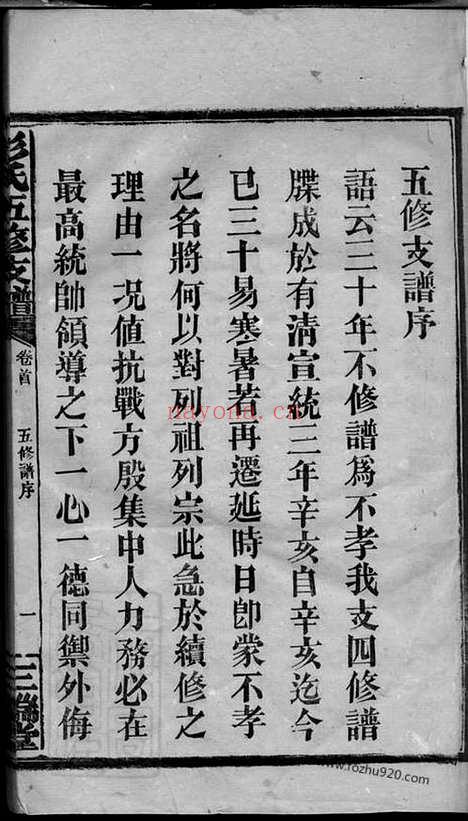 五修支譜序
語云三十年不修譜爲不孝我支四修譜
牒成於有清宣統三年辛亥自辛亥迄今
已三十易寒暑若再遷延時日卽蒙不孝
之名將何以對列祖列宗此急於續修之
理由一况值抗戰方殷集中人力務必在
最高統帥領導之下一心一德同禦外侮
彭氏五修支譜
卷首
五修譜序
一
三瑞堂
nayona.cn
www.rozhu920.com